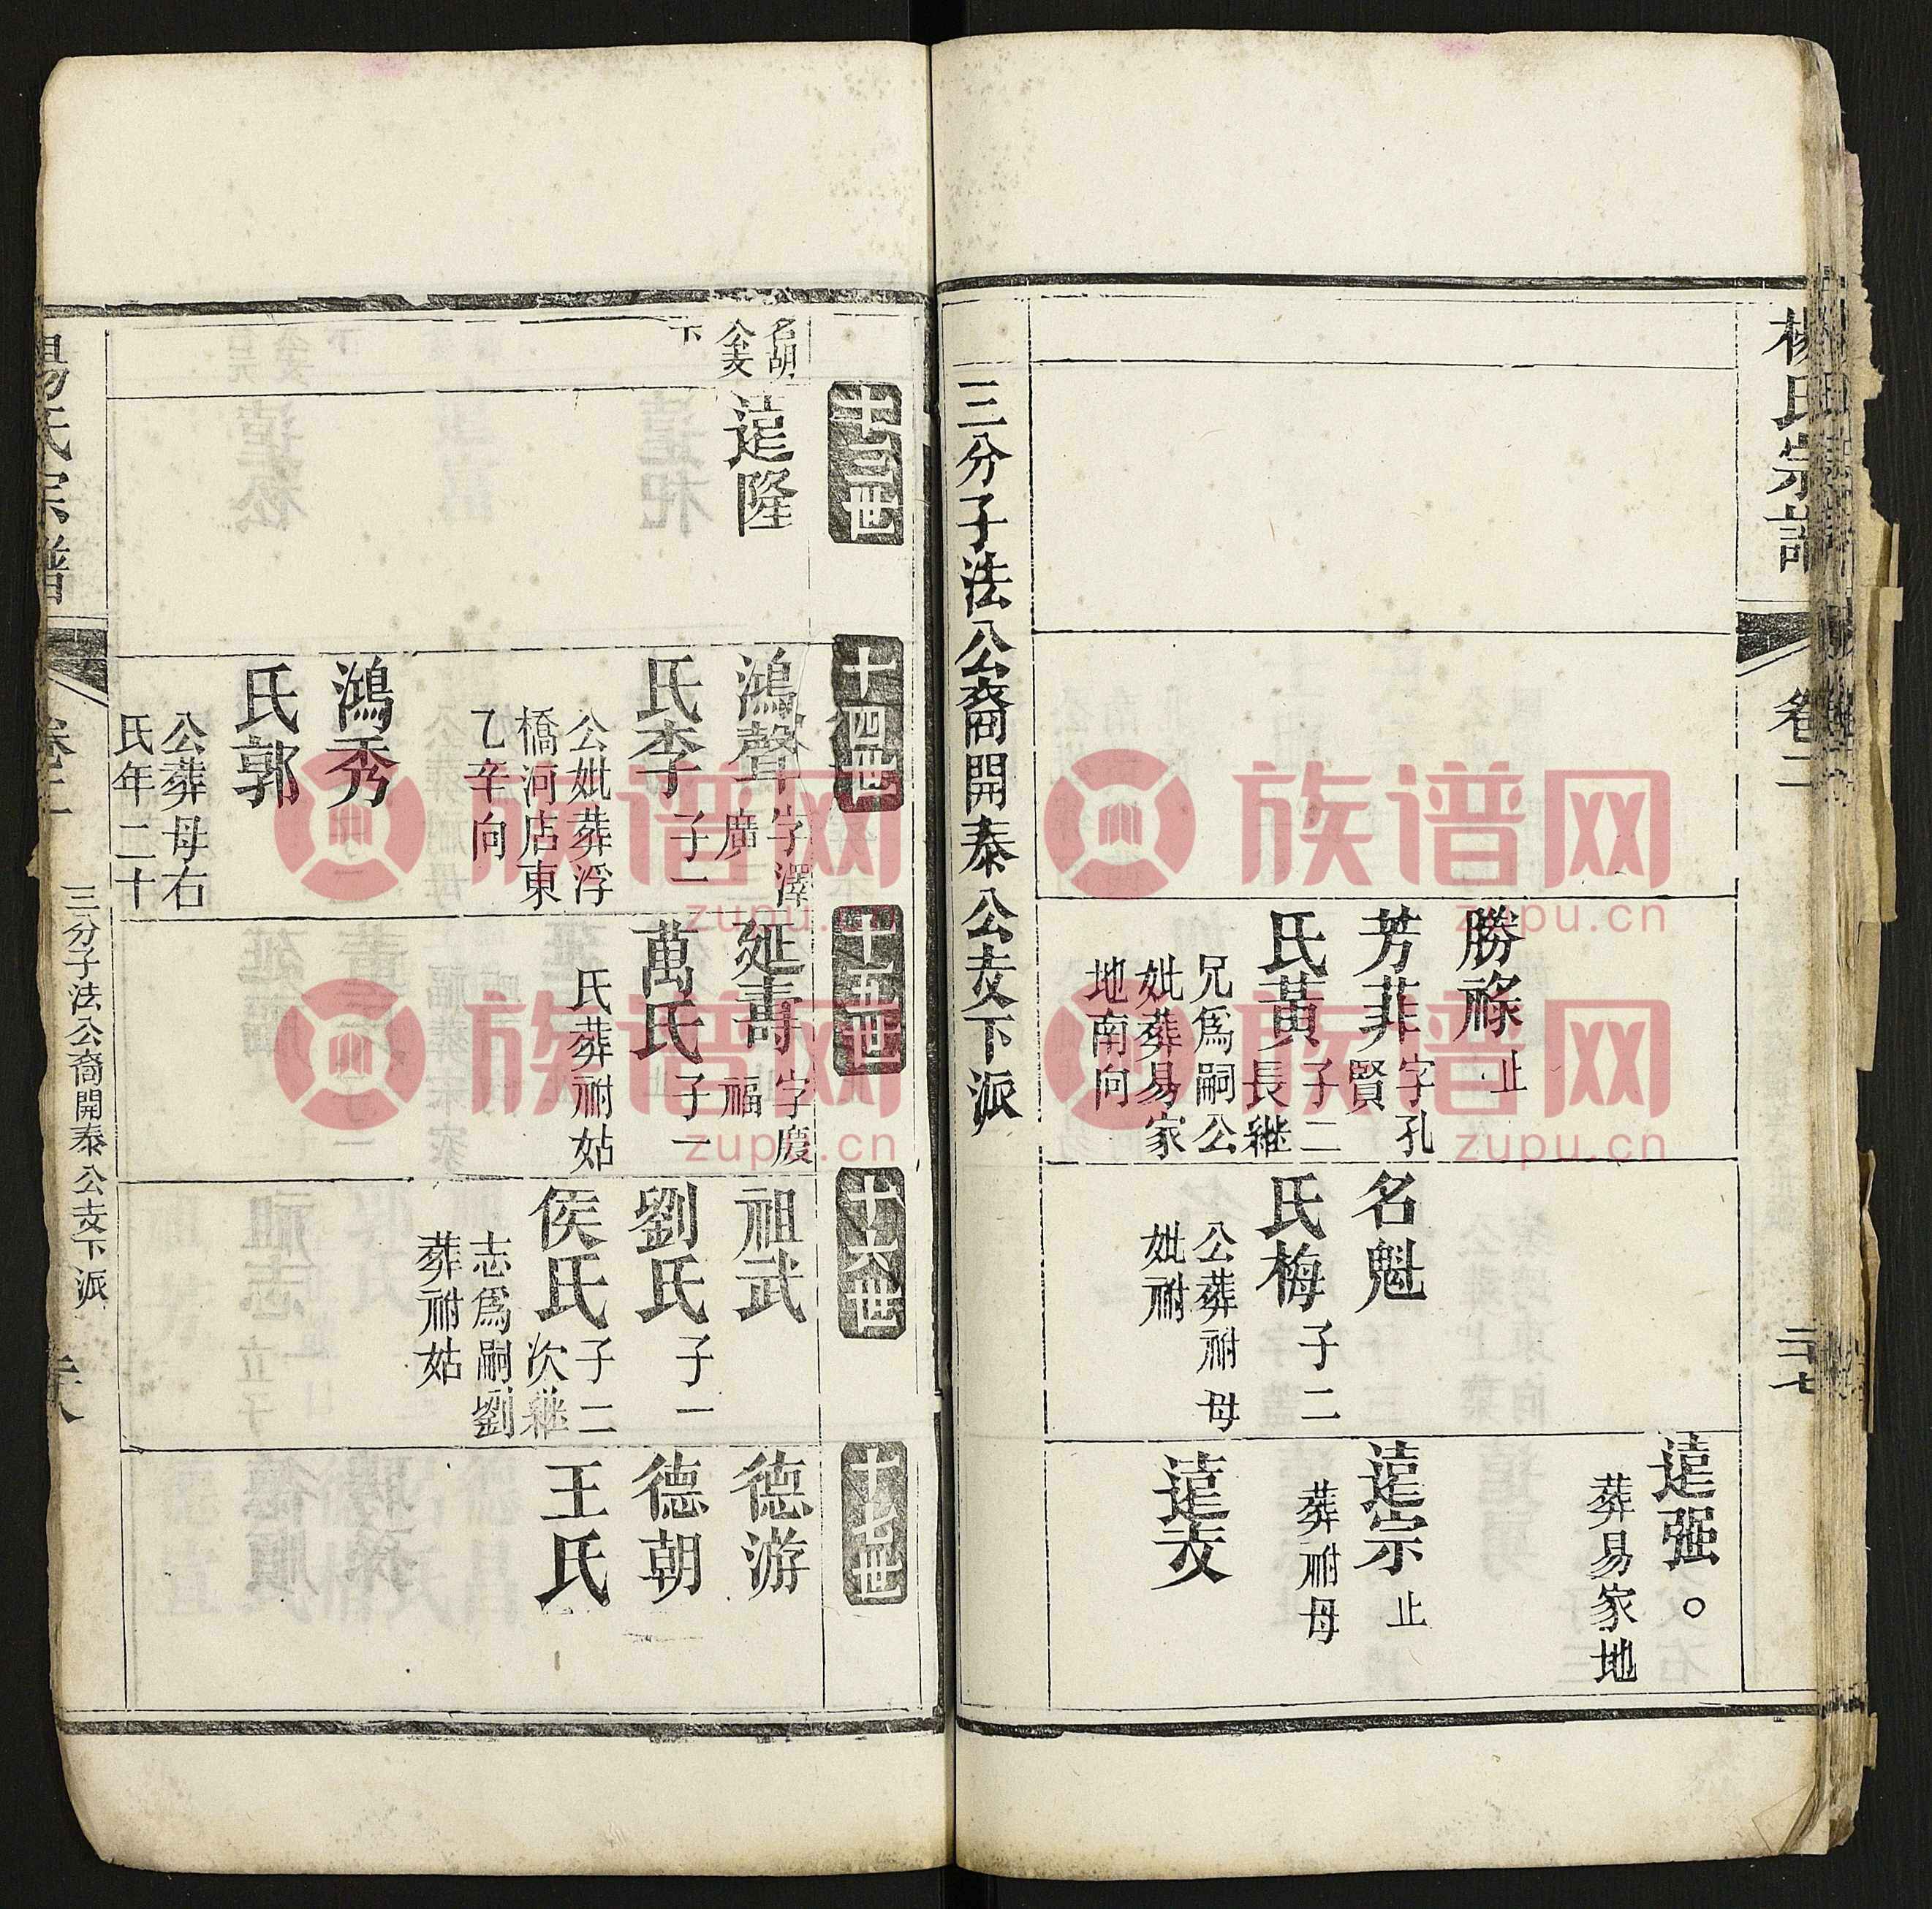 楊氏宗譜
卷二
二十七
勝祿止
芳菲字孔賢
氏黃子二長繼
兄爲嗣公
妣葬易家
地南向
名魁
氏梅子二
公葬祔母
妣祔
遠强。
葬易家地
遠宗止
葬祔母
遠友
三分子法公裔開泰公支下派
十三世
十四世
十五世
十六世
十七世
名胡
公支
下
遠隆
鴻聲字澤廣
氏李子一
公妣葬浮
橋河店東
乙辛向
鴻秀
氏郭
公葬母右
氏年二十
延壽字慶福
萬氏子一
氏葬祔姑
祖武
劉氏子一
侯氏子二次繼
志爲嗣劉
葬祔姑
德游
德朝
王氏
楊氏宗譜
三分子法公裔開泰公支下派
族谱网
zupu.cn
族谱网
zupu.cn
族谱网
zupu.cn
族谱网
zupu.cn